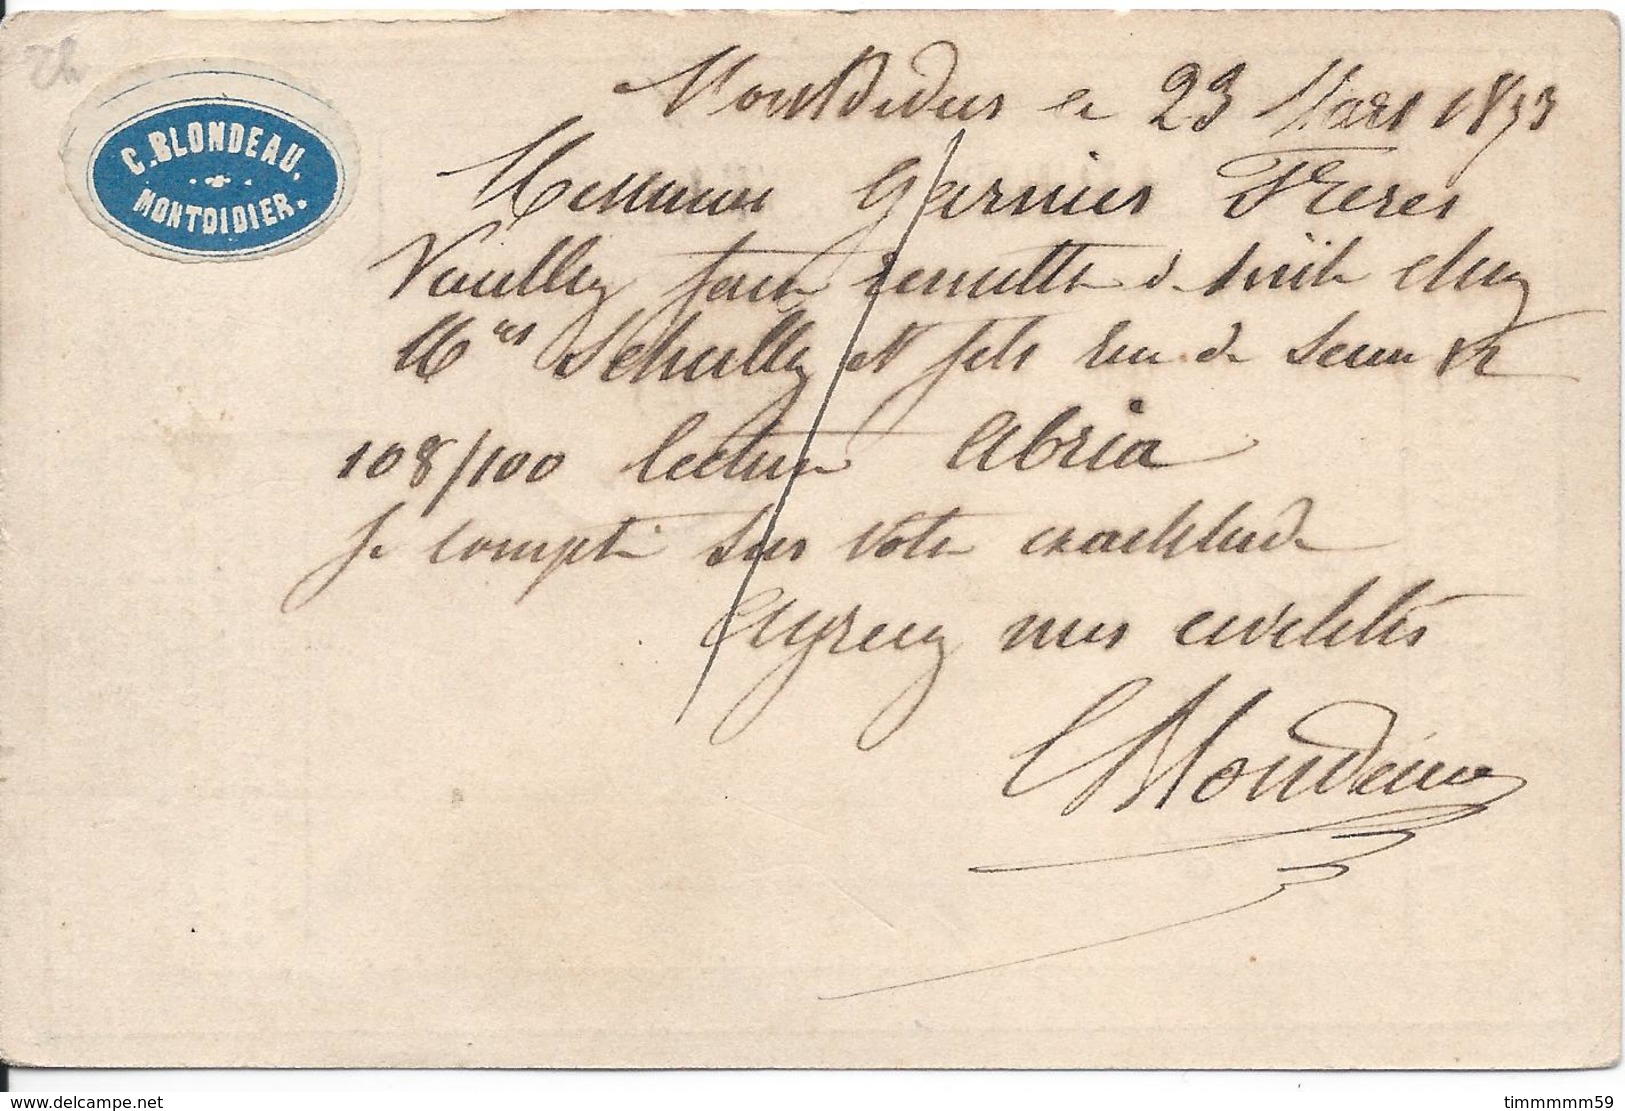 C. BLONDEAU.
MONTDIDIER.
Montdidier le 23 Mars 1873
Messieurs Garnier Freres
Veuillez faire remettre de suite chez
Mrs Schully et fils rue de Seine 12
108/100 lecture Abria
Je compte sur votre exactitude
Agreez mes civilités
CBlondeau
www.delcampe.net
timmmmmm59